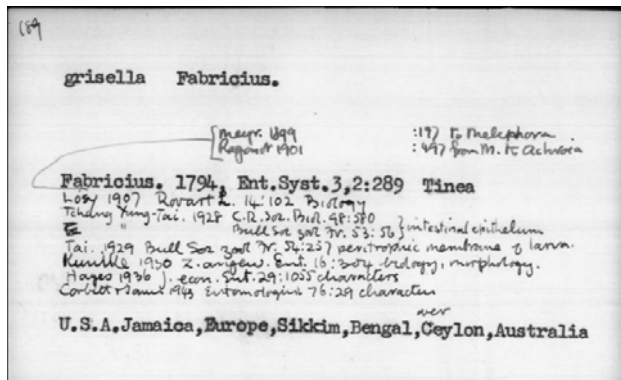 189
grisella Fabricius.
Meyr. 1899 :197 to Meliphora
Ragonot 1901 :497 from M. to Achroia
Fabricius. 1794, Ent.Syst.3,2:289 Tinea
Lósy 1907 Rovart L. 14:102 Biology
Tchang Yung-Tai. 1928 C.R. Soc. Biol. 98:580
" Bull Soc zool Fr. 53:56 } intestinal epithelum
Tai. 1929 Bull Soc zool Fr. 54:257 peritrophic membrane of larva.
1930 Z. angew. Ent. 16:304 biology, morphology.
Hayes 1936 J. econ. Ent. 29:1055 characters
Corbett 1943 Entomologist 76:29 characters
aver
U.S.A.Jamaica,Europe,Sikkim,Bengal,Ceylon,Australia